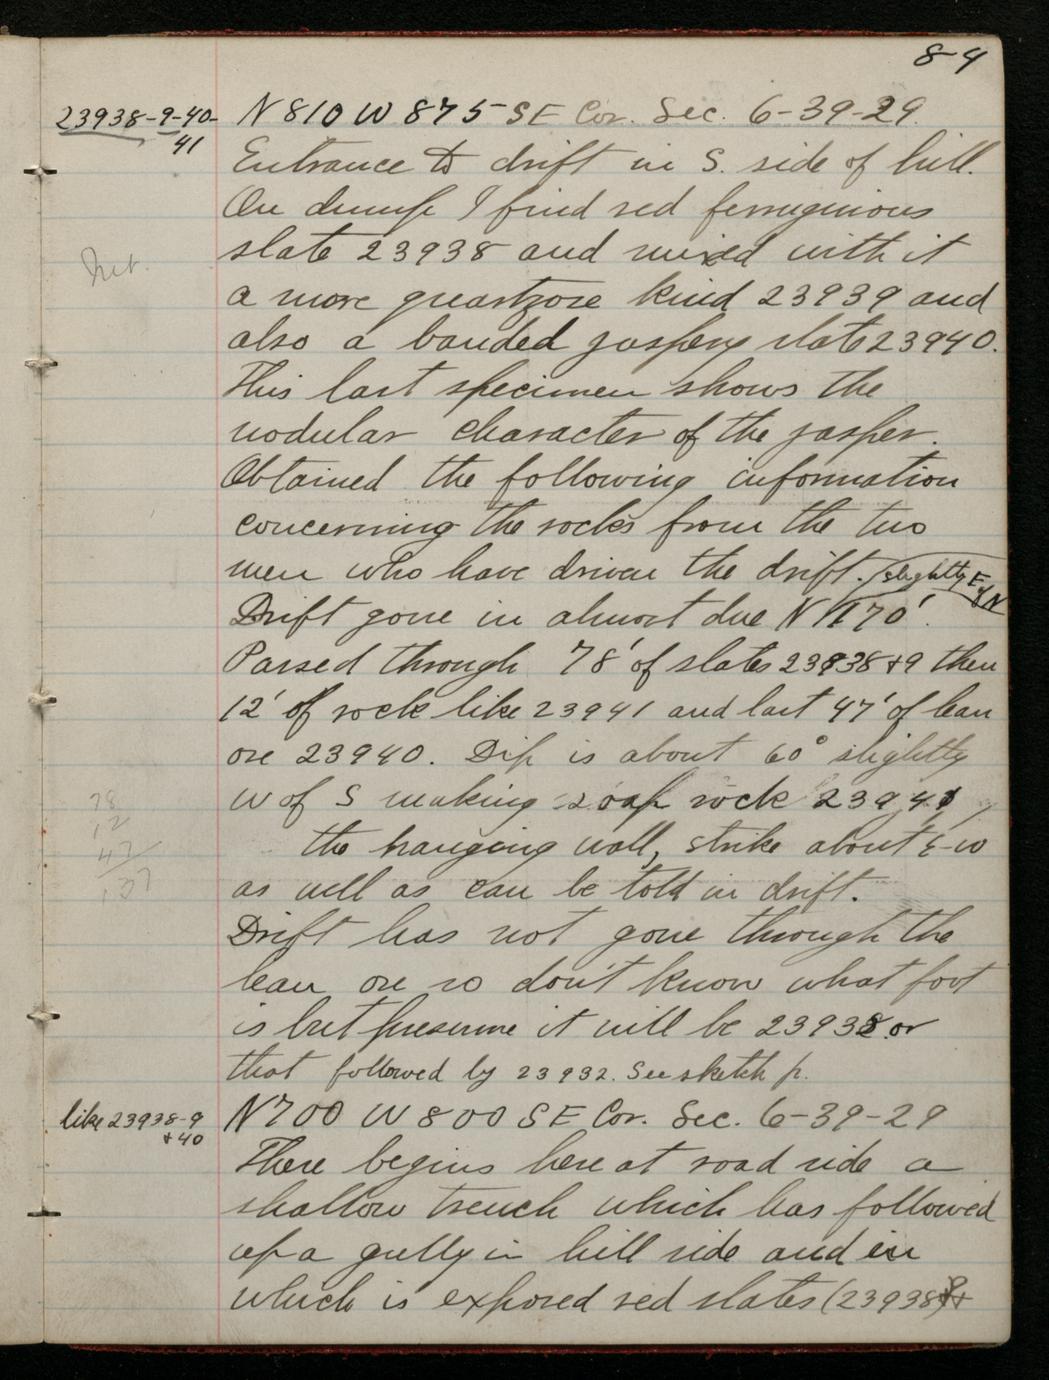 84
23938-9-40-
41
N 810 W 875 SE Cor. Sec. 6-39-29.
Entrance to drift in S. side of hill.
On dump I find red ferruginous
slate 23938 and mixed with it
a more quartzose kind 23939 and
also a banded jaspery slate 23940.
This last specimen shows the
nodular character of the jasper.
Obtained the following information
concerning the rocks from the two
men who have driven the drift.
slightly E of N
Drift gone in almost due N 170'.
Passed through 78' of slates 23938+9 then
12' of rock like 23941 and last 47' of lean
ore 23940. Dip is about 60° slightly
W of S making soap rock 23941
78
12
47
137
the hanging wall, strike about E-W
as well as can be told in drift.
Drift has not gone through the
lean ore so don't know what foot
is but presume it will be 23938 or
that followed by 23932. See sketch p.
like 23938-9
+40
N700 W 800 SE Cor. Sec. 6-39-29
There begins here at road side a
shallow trench which has followed
up a gully in hill side and in
which is exposed red slates (23938